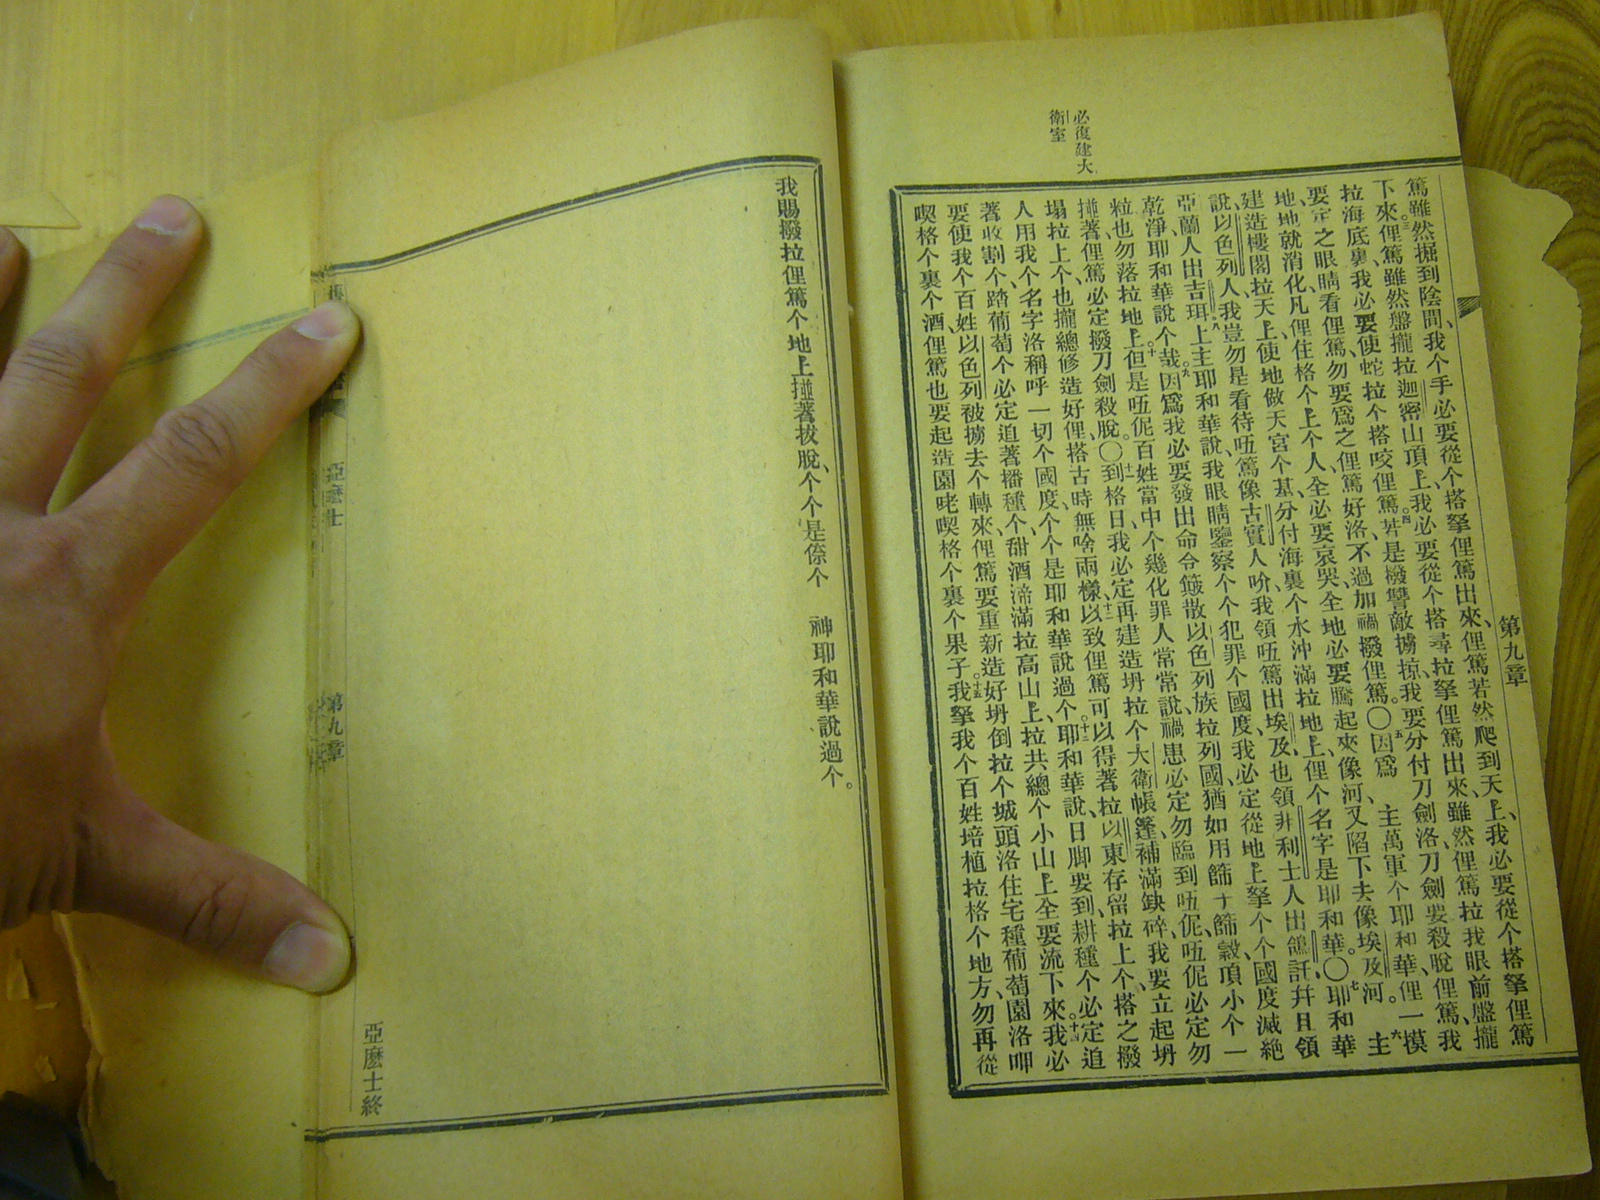 第九章
必復建大
衛室
篤雖然掘到陰間、我个手必要從个搭拏俚篤出來、俚篤若然爬到天上、我必要從个搭拏俚篤
下來。三俚篤雖然盤攏拉迦密山頂上、我必要從个搭尋拉拏俚篤出來、雖然俚篤拉我眼前盤攏
拉海底裏、我必要使蛇拉个搭咬俚篤。四并是撥讐敵擄掠、我要分付刀劍洛、刀劍要殺脫俚篤、我
要定之眼睛看俚篤、勿要爲之俚篤好洛、不過加禍撥俚篤。〇五因爲 主萬軍个耶和華、俚一摸
地、地就消化、凡俚住格个上个人、全必要哀哭、全地必要騰起來像河、又陷下去像埃及河。六主
建造樓閣拉天上、使地做天宮个基、分付海裏个水沖滿拉地上、俚个名字是耶和華。〇七耶和華
說、以色列人、我豈勿是看待㕶篤像古實人吤、我領㕶篤出埃及、也領非利士人出㒰託、幷且領
亞蘭人出吉珥。八上主耶和華說、我眼睛鑒察个个犯罪个國度、我必定從地上拏个个國度滅絕
乾淨、耶和華說个哉。九因爲我必要發出命令、簸散以色列族拉列國、猶如用篩十篩穀、頂小个一
粒、也勿落拉地上。十但是㕶伲百姓當中个幾化罪人、常常說、禍患必定勿臨到㕶伲、㕶伲必定勿
掽著、俚篤必定撥刀劍殺脫。〇十一到格日、我必定再建造坍拉个大衛帳篷、補滿缺碎、我要立起坍
塌拉上个、也攏總修造好、俚搭古時無啥兩樣、十二以致俚篤可以得著拉以東存留拉上个、搭之撥
人用我个名字洛稱呼一切个國度、个个是耶和華說過个。十三耶和華說、日脚要到、耕種个必定追
著收割个、踏葡萄个必定追著播種个、甜酒渧滿拉高山上、拉共總个小山上全要流下來。十四我必
要使我个百姓以色列被擄去个轉來、俚篤要重新造好坍倒拉个城頭洛住宅、種葡萄園洛呷
喫格个裏个酒、俚篤也要起造園咾喫格个裏个果子。十五我拏我个百姓培植拉格个地方、勿再從
我賜撥拉俚篤个地上掽著拔脫、个个是㑚个 神耶和華說過个。
亞麽士
第九章
亞麽士終